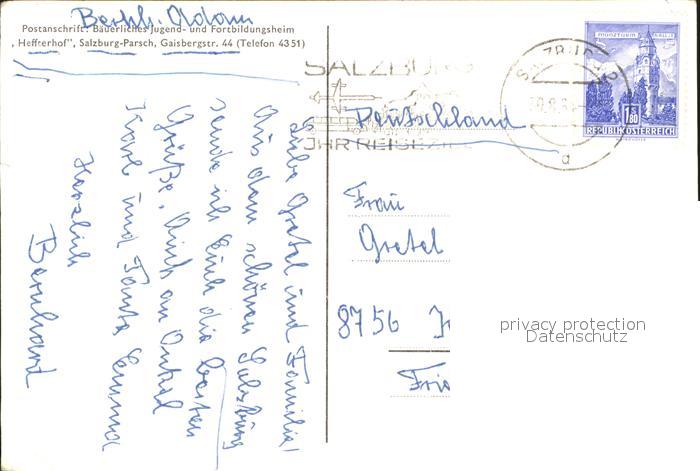 Bernh. Adam
Postanschrift: Bäuerliches Jugend- und Fortbildungsheim
„Heffrerhof", Salzburg-Parsch, Gaisbergstr. 44 (Telefon 4351)
Liebe Gretel und Familie!
Aus dem schönen Salzburg
sende ich Euch die besten
Grüße. Auch an Onkel
Karl und Tante Emma
Herzlich
Bernhard
SALZBURG
IHR REISEZIEL
SALZBURG 2
d
MÜNZTURM
1.80
REPUBLIK ÖSTERREICH
Deutschland
Frau
Gretel
8756
privacy protection
Datenschutz